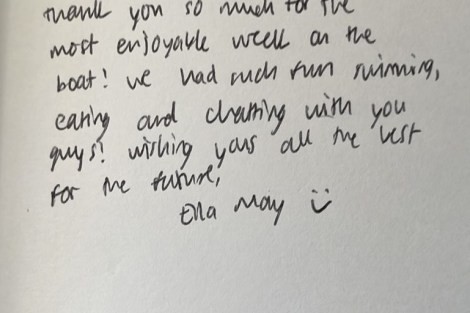 thank you so much for the
most enjoyable week on the
boat! we had such fun swimming,
eating and chatting with you
guys! wishing you all the best
for the future,
Ella May :)